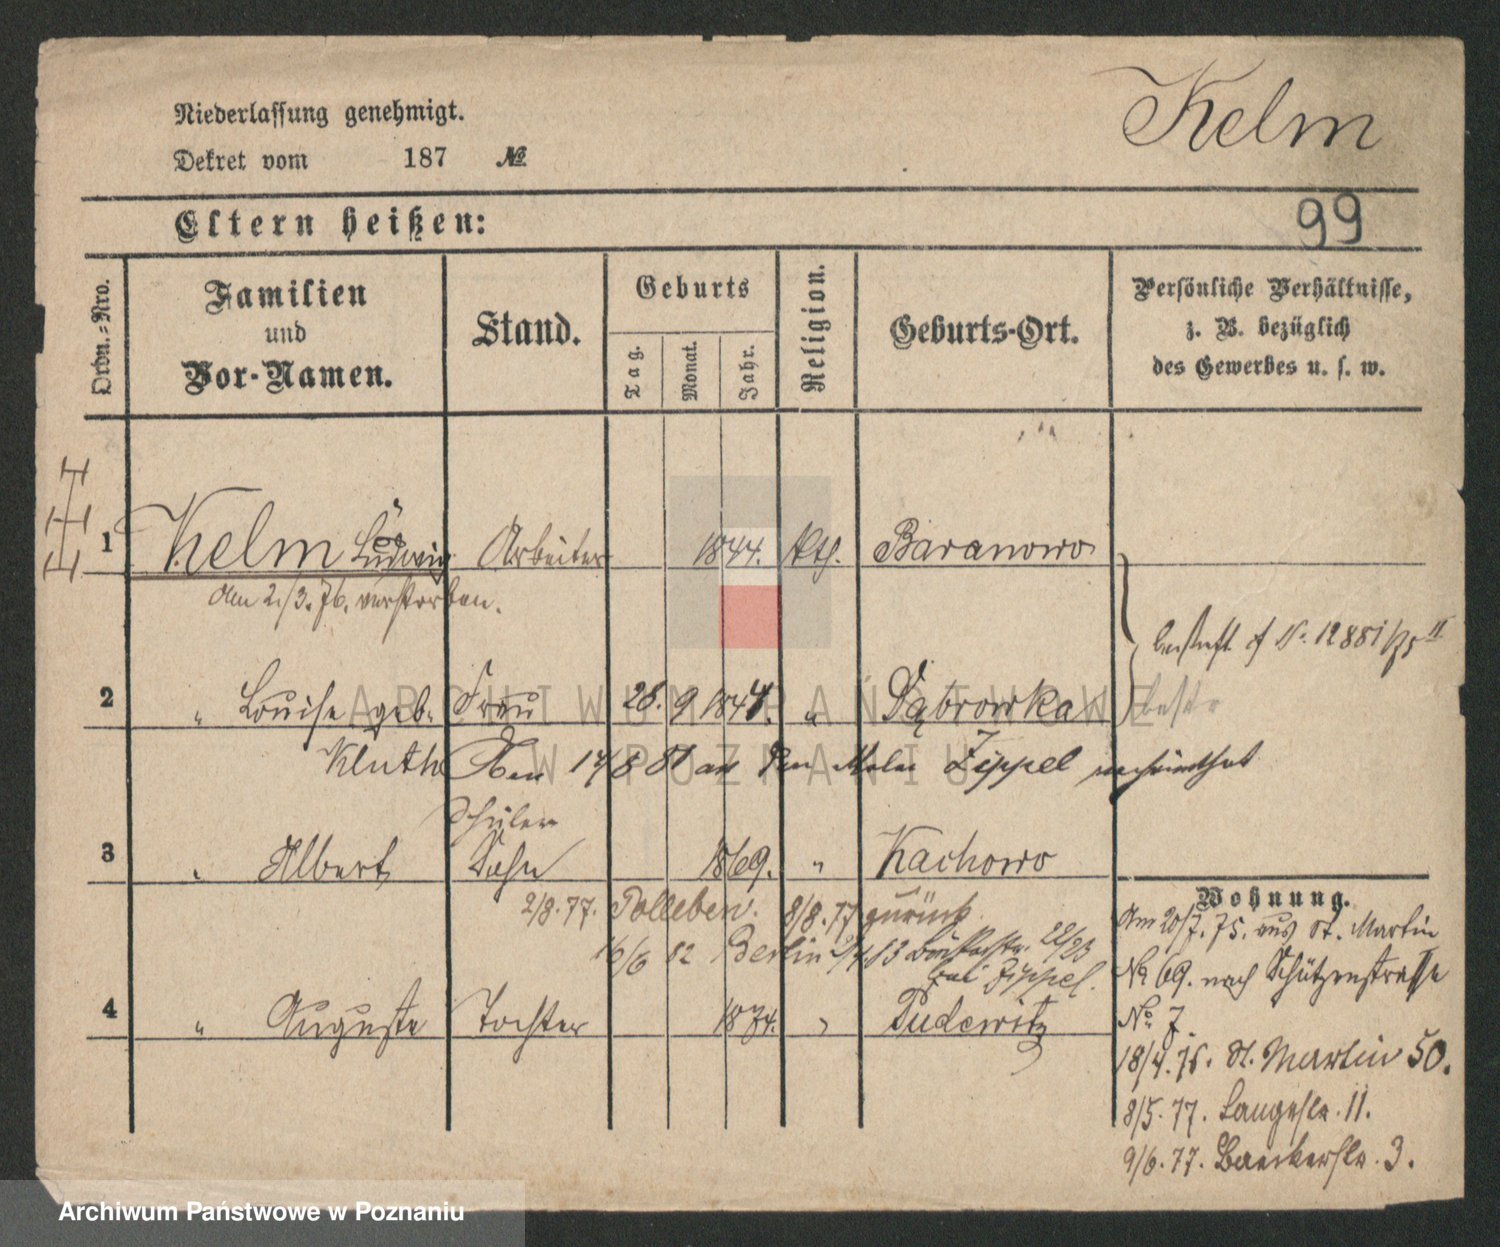 Kelm
Niederlassung genehmigt.
Dekret vom 187 №
99
Eltern heißen:
Ordn.-Nro.
Familien
und
Vor-Namen.
Stand.
Geburts
Tag.
Monat.
Jahr.
Religion.
Geburts-Ort.
Persönliche Verhältnisse,
z. B. bezüglich
des Gewerbes u. s. w.
1 Kelm Ludwig Arbeiter 1844. Kth. Baranowo
am 2./3. 76. verstorben.
bestraft
2 " Louise geb. Frau 28. 9 1844. " Dąbrowka
Kluth Den 17/8 81 an den Maler Zippel verheirathet
Schüler
3 " Albert Sohn 1869. " Kachowo
2/8. 77. Polleben. 8/8. 77 zurück
16/6 82 Berlin 22/23
bei Zippel.
4 " Auguste Tochter 1874. " Pudewitz
Wohnung.
Am 20/7. 75. aus St. Martin
№ 69. nach Schützenstrasse
No. 7.
18/4. 76. St. Martin 50.
8/5. 77. Langestr. 11.
9/6. 77. Baeckerstr. 3.
ARCHIWUM PAŃSTWOWE
W POZNANIU
Archiwum Państwowe w Poznaniu